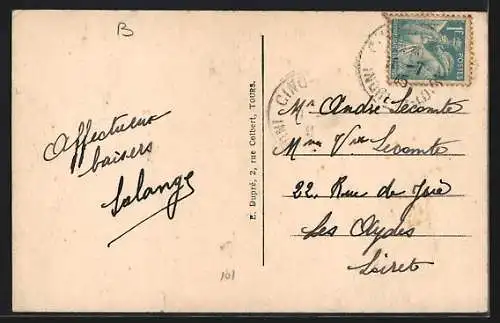 B
Affectueux
baisers
Solange
E. Dupré, 2, rue Colbert, TOURS.
161
1F
POSTES
CINQ
Mr André Lecomte
Mme Vve Lecomte
22, Rue de
Les Aydes
Loiret